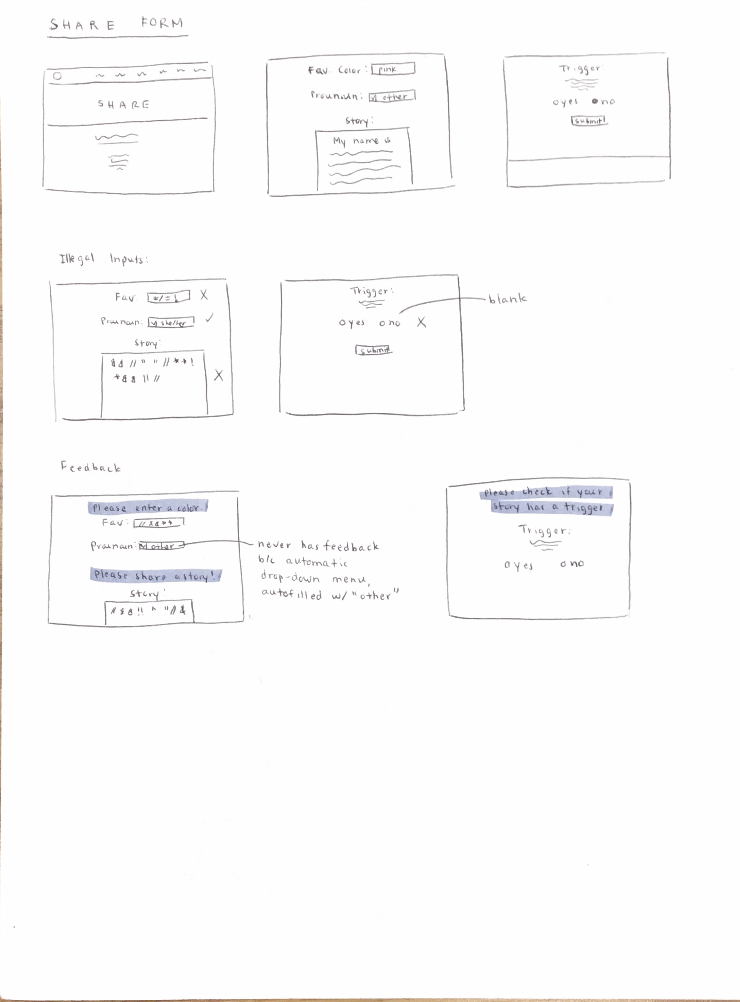 SHARE FORM
SHARE
Fav Color: pink
Prounoun: v other
Story:
My name is
Trigger
o yes ● no
submit
Illegal Inputs:
Fav: */=! X
Prounoun: v she/her ✓
Story:
X
Trigger:
o yes o no X
blank
submit
Feedback
Please enter a color!
Fav:
Prounoun: v other
never has feedback
b/c automatic
drop-down menu,
autofilled w/ "other"
Please share a story!
Story:
Please check if your
story has a trigger!
Trigger:
o yes o no